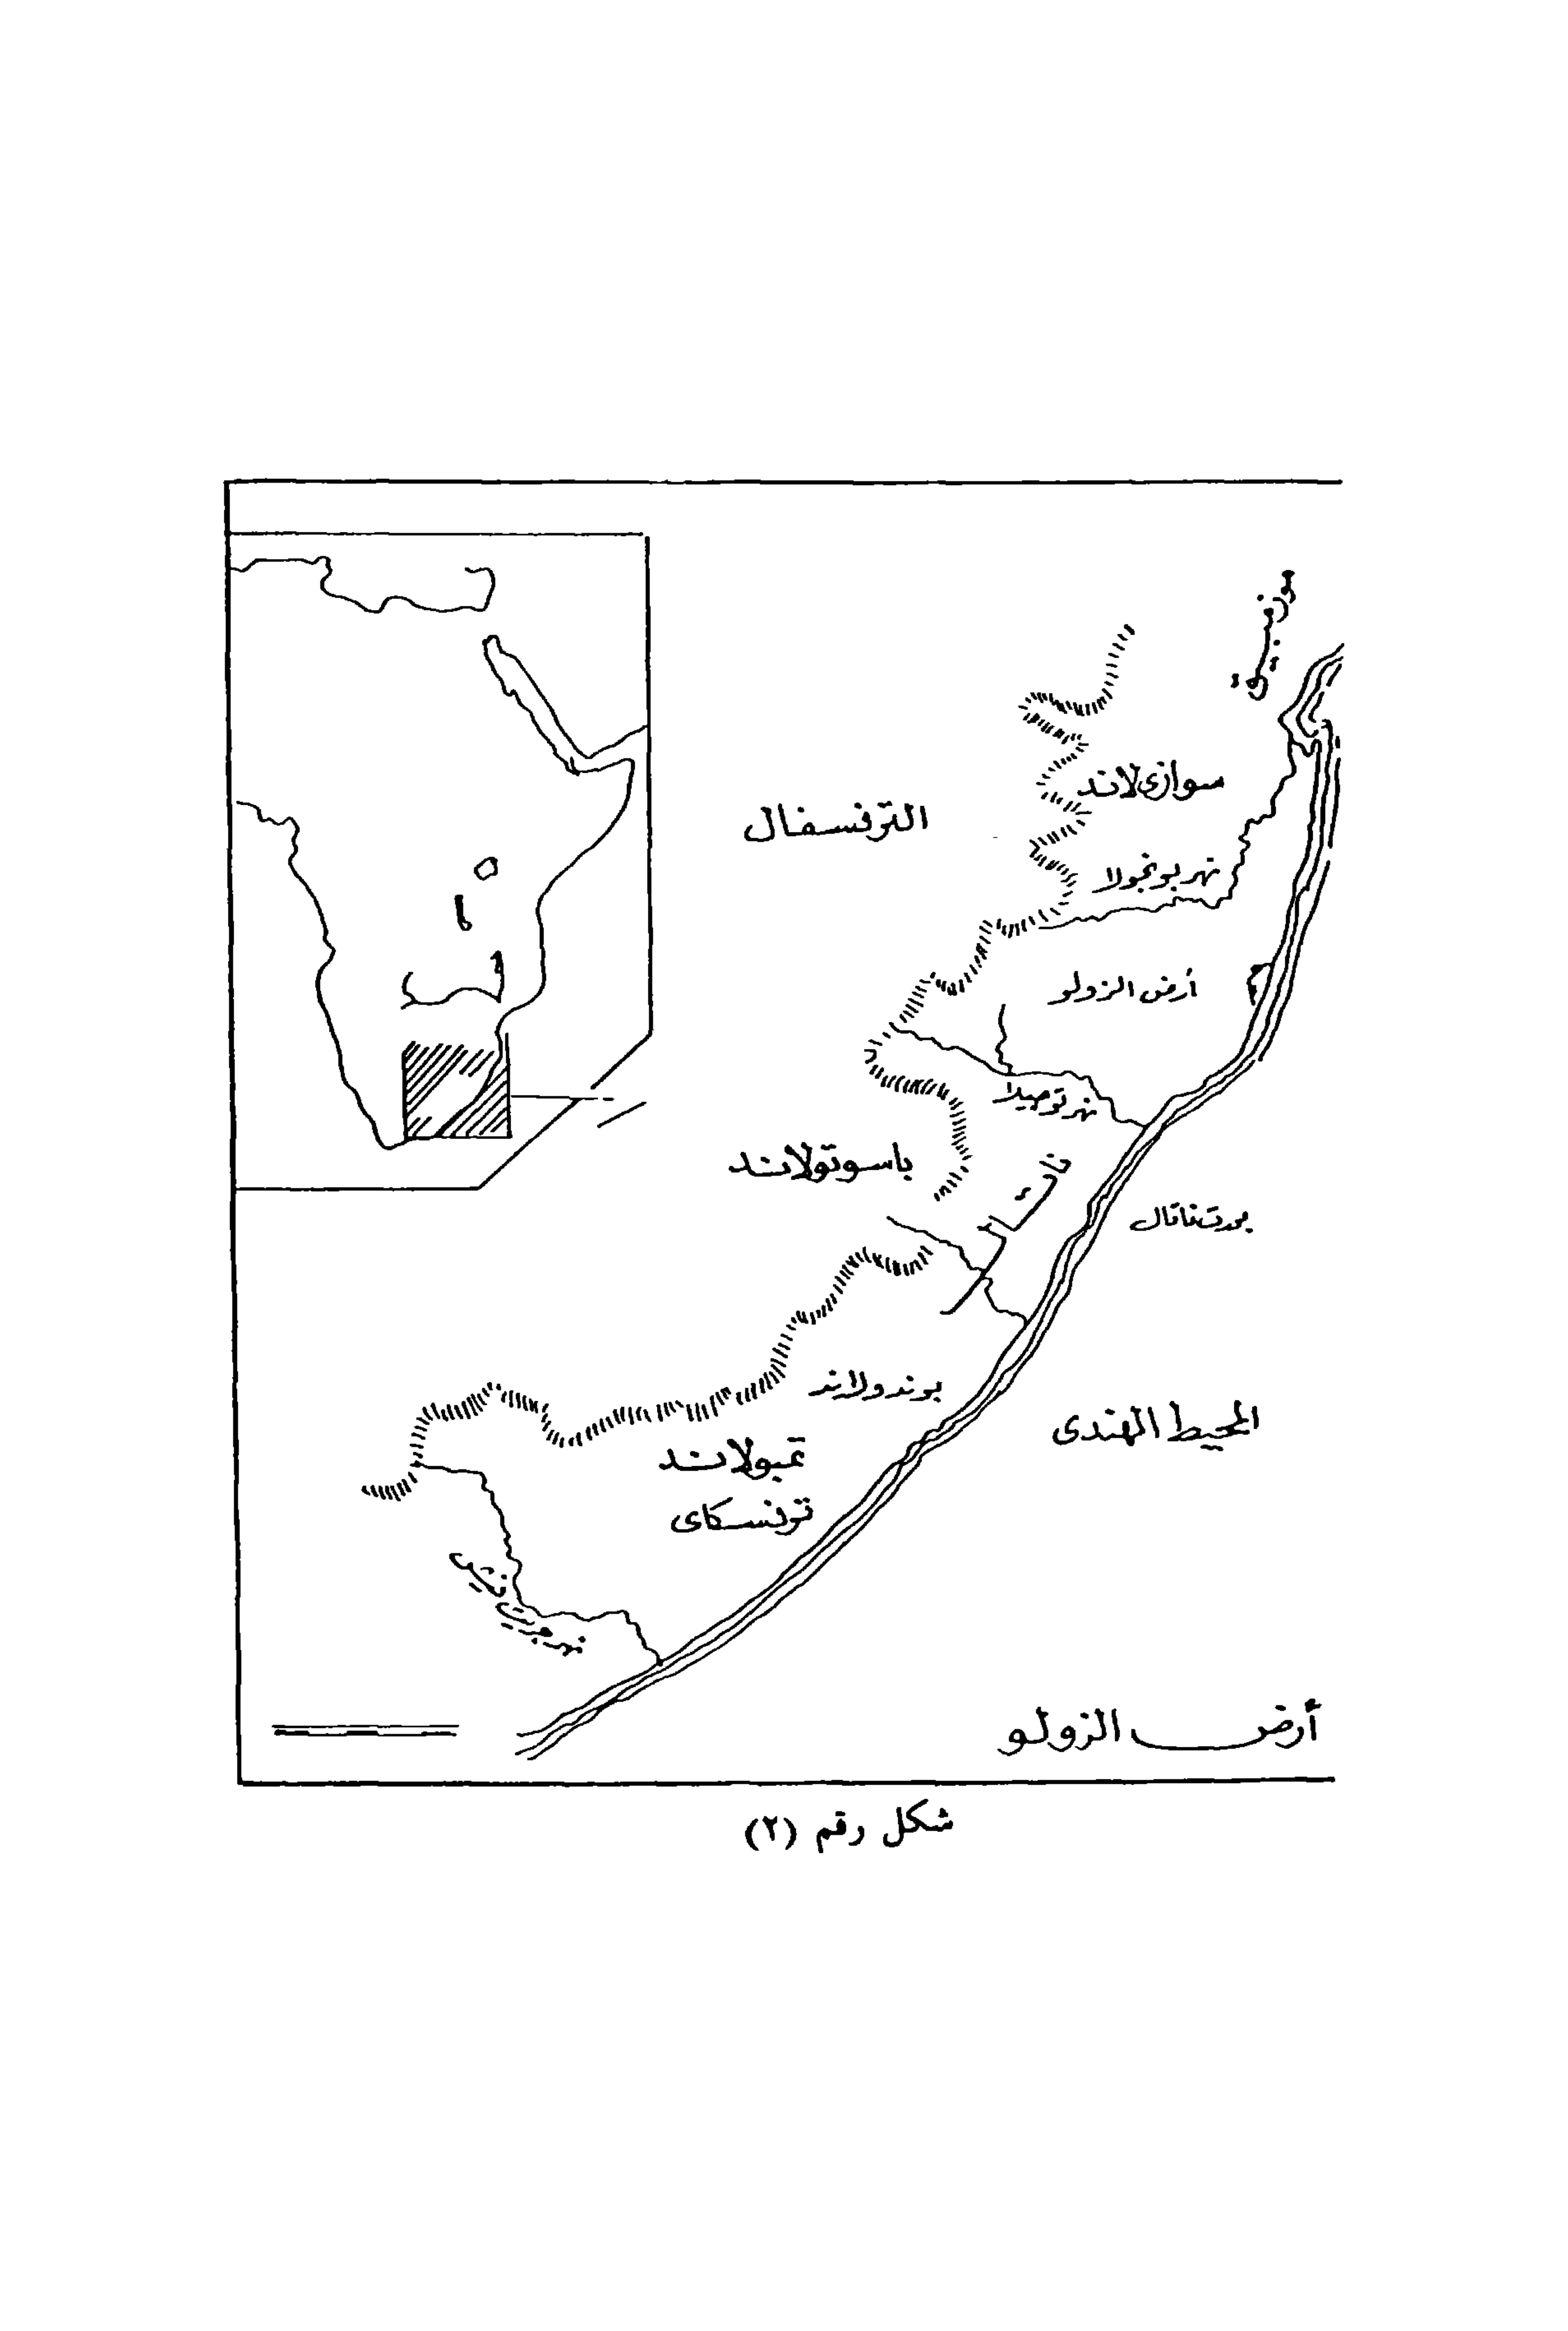 موزمبيق
سوازى لاند
الترنسفال
نهر بونجولا
أرض الزولو
نهر توجيلا
باسوتولاند
ناتال
بورت ناتال
بوندولاند
المحيط الهندى
تمبولاند
ترنسكاى
نهر جريت فيش
أرض الزولو
شكل رقم (٢)